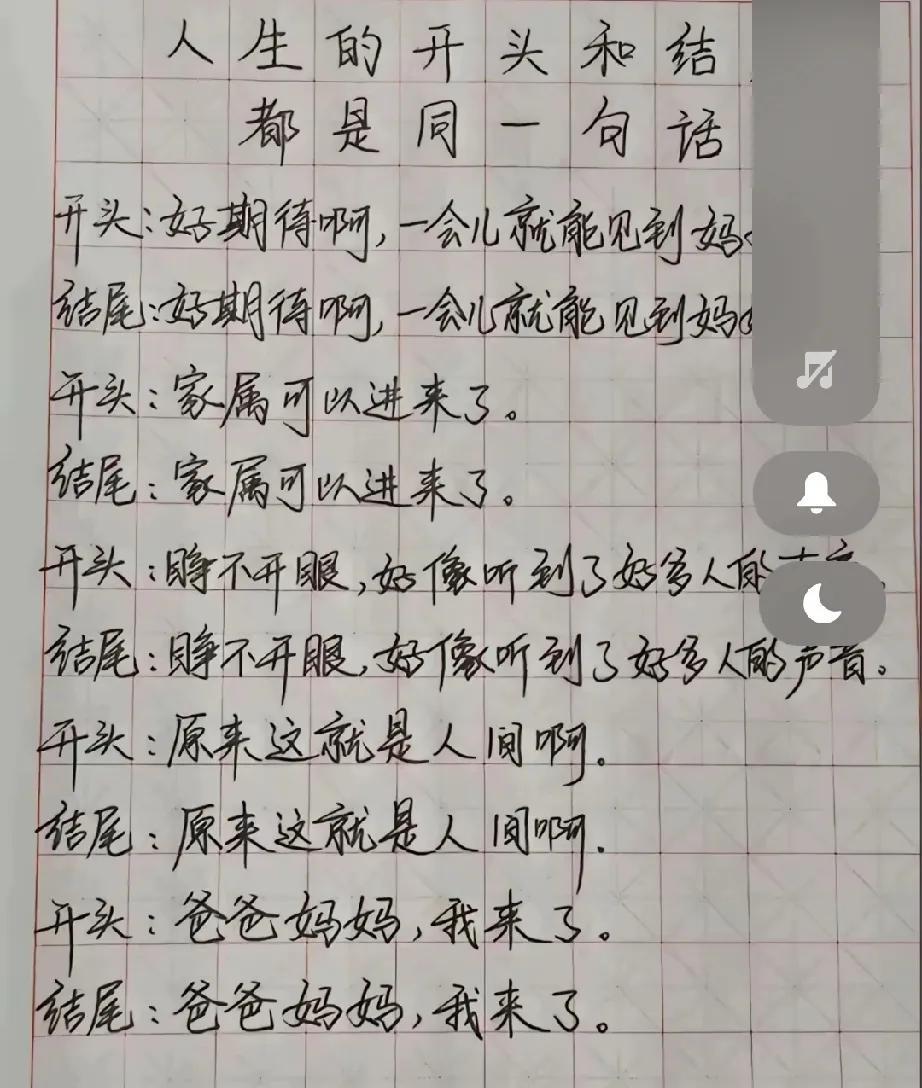 人生的开头和结
都是同一句话
开头：好期待啊，一会儿就能见到妈
结尾：好期待啊，一会儿就能见到妈
开头：家属可以进来了。
结尾：家属可以进来了。
开头：睁不开眼，好像听到了好多人的
结尾：睁不开眼，好像听到了好多人的声音。
开头：原来这就是人间啊.
结尾：原来这就是人间啊.
开头：爸爸妈妈，我来了。
结尾：爸爸妈妈，我来了。